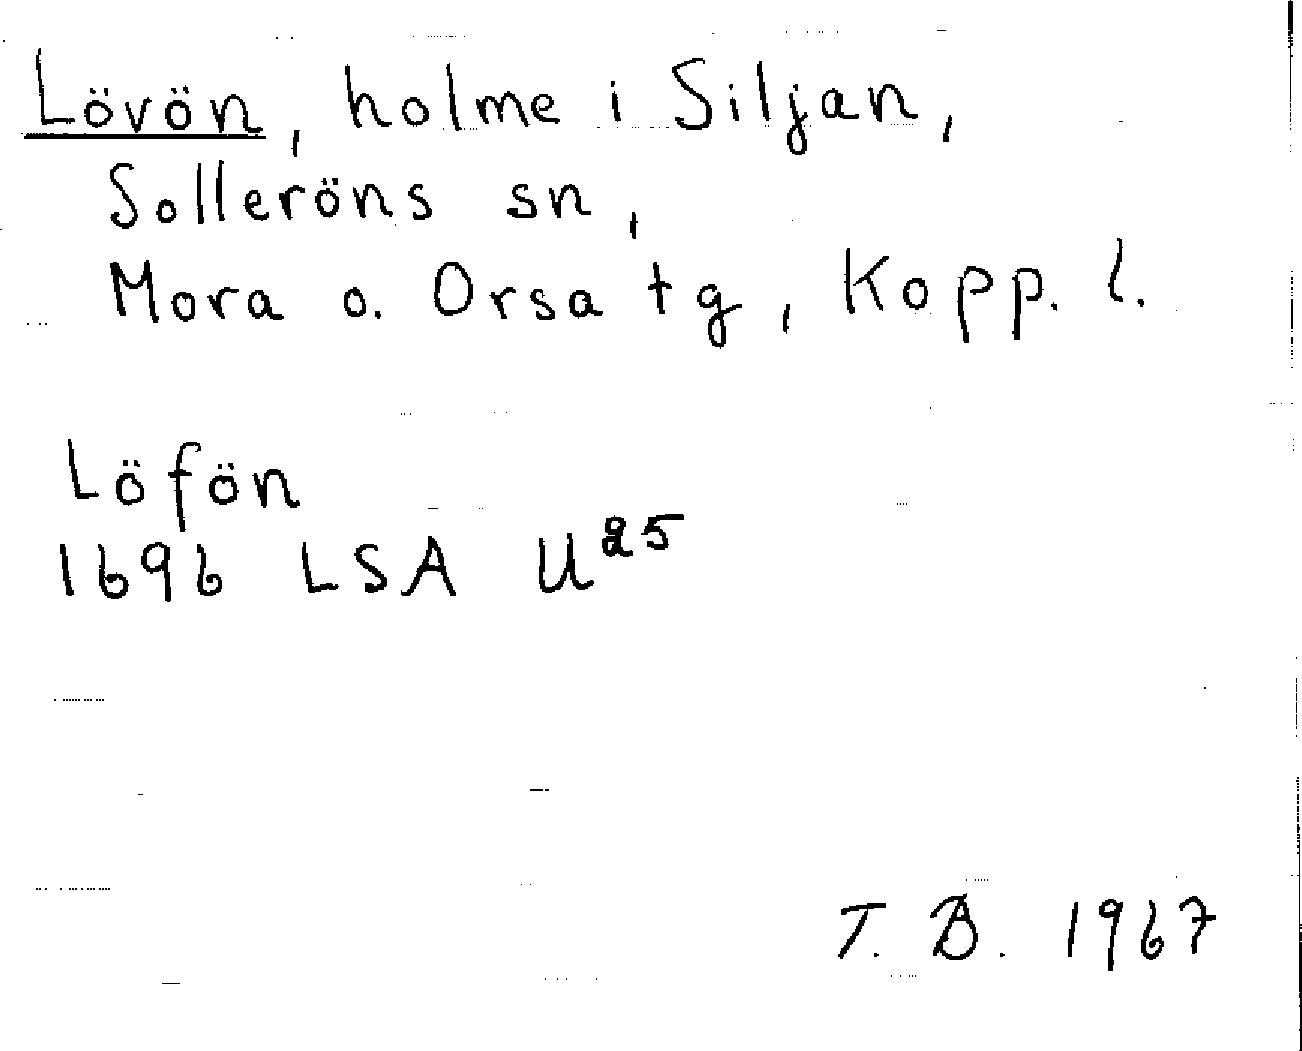 Lövön, holme i Siljan,
Solleröns sn,
Mora o. Orsa tg, Kopp. l.
Löfön
1696 LSA U²⁵
T. B. 1967